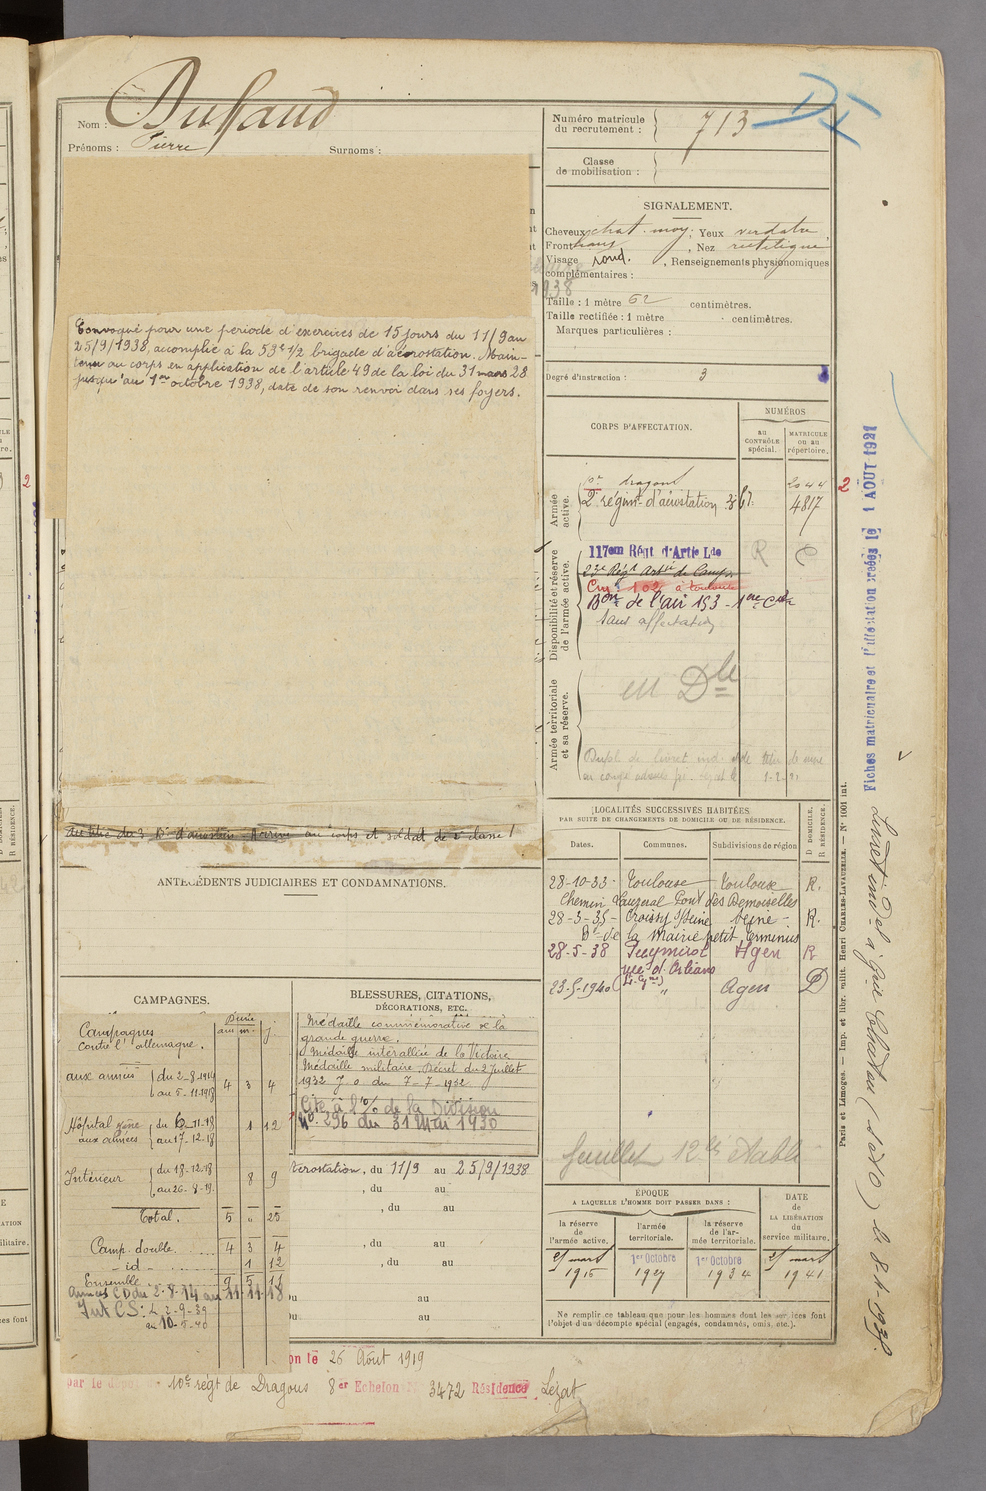 Nom : Dussaud
Prénoms : Pierre
Surnoms :
Numéro matricule
du recrutement :
713
Classe
de mobilisation :
SIGNALEMENT.
Cheveux chat. moy; Yeux verdatre
Front moy, Nez rectiligne
Visage rond. , Renseignements physionomiques
complémentaires :
1938
Taille : 1 mètre 62 centimètres.
Taille rectifiée : 1 mètre centimètres.
Marques particulières :
Degré d'instruction : 3
Convoqué pour une période d'exercices de 15 jours du 11/9 au
25/9/1938, accomplie à la 53e 1/2 brigade d'aérostation. Main-
tenu au corps en application de l'article 49 de la loi du 31 mars 28
jusqu'au 1er octobre 1938, date de son renvoi dans ses foyers.
au corps et soldat de 2e classe !
ANTÉCÉDENTS JUDICIAIRES ET CONDAMNATIONS.
CORPS D'AFFECTATION.
NUMÉROS
au
CONTRÔLE
spécial.
MATRICULE
ou au
répertoire.
Armée
active.
dragons
2e régimt d'aérostation
4817
Disponibilité et réserve
de l'armée active.
117em Régt d'Artie Lde
R
23e Régt Artie de Camp.
102 à Toulouse
Bon de l'air 153 - 1ere Cie
Sans affectation
Armée territoriale
et sa réserve.
en Dle
1-2-21
LOCALITÉS SUCCESSIVES HABITÉES
PAR SUITE DE CHANGEMENTS DE DOMICILE OU DE RÉSIDENCE.
D DOMICILE.
R RÉSIDENCE.
Dates.
Communes.
Subdivisions de région
28-10-33 Toulouse Toulouse R.
Chemin Lauzeral Pont des Demoiselles
28-3-35- Croissy S/Seine Seine - R.
Bd de la Mairie petit terminus
28-5-38 Puymirol Agen R
rue d'Orléans
23-5-1940 " Agen D
feuillet 12
CAMPAGNES.
Campagnes
contre l'allemagne.
Durée
ans m. j.
aux armées du 2-8-1914
au 5-11-1918
4 3 4
Hôpital zône
aux armées
du 6-11-18
au 17-12-18
1 12
Intérieur du 18-12-18
au 26-8-19
8 9
Total. 5 " 25
Camp. double. 4 3 4
- id - 1 12
Ensemble 9 5 11
Armées CD du 2-8-14 au 11-11-18
Int CS: d 2-9-39
au 10-5-40
BLESSURES, CITATIONS,
DÉCORATIONS, ETC.
Médaille commémorative de la
grande guerre.
Médaille interalliée de la Victoire
Médaille militaire. Décret du 2 Juillet
1932 J.O. du 7-7-1932
Cité à l'O/ de la Division
No. 296 du 31 Mai 1930
aérostation, du 11/9 au 25/9/1938
, du au
, du au
, du au
, du au
du au
du au
ÉPOQUE
A LAQUELLE L'HOMME DOIT PASSER DANS :
DATE
de
LA LIBÉRATION
du
service militaire.
la réserve
de
l'armée active.
l'armée
territoriale.
la réserve
de l'ar-
mée territoriale.
25 mars
1916
1er Octobre
1927
1er Octobre
1934
25 mars
1941
Ne remplir ce tableau que pour les hommes dont les services font
l'objet d'un décompte spécial (engagés, condamnés, omis, etc.).
on le 26 Août 1919
par le dépôt de 10e régt de Dragons 8er Echelon No 3472 Résidence Lézat
2
Fiches matriculaire et d'affectation créées le 1 AOUT 1927
Paris et Limoges. — Imp. et libr. milit. Henri CHARLES-LAVAUZELLE. — N° 1001 int.